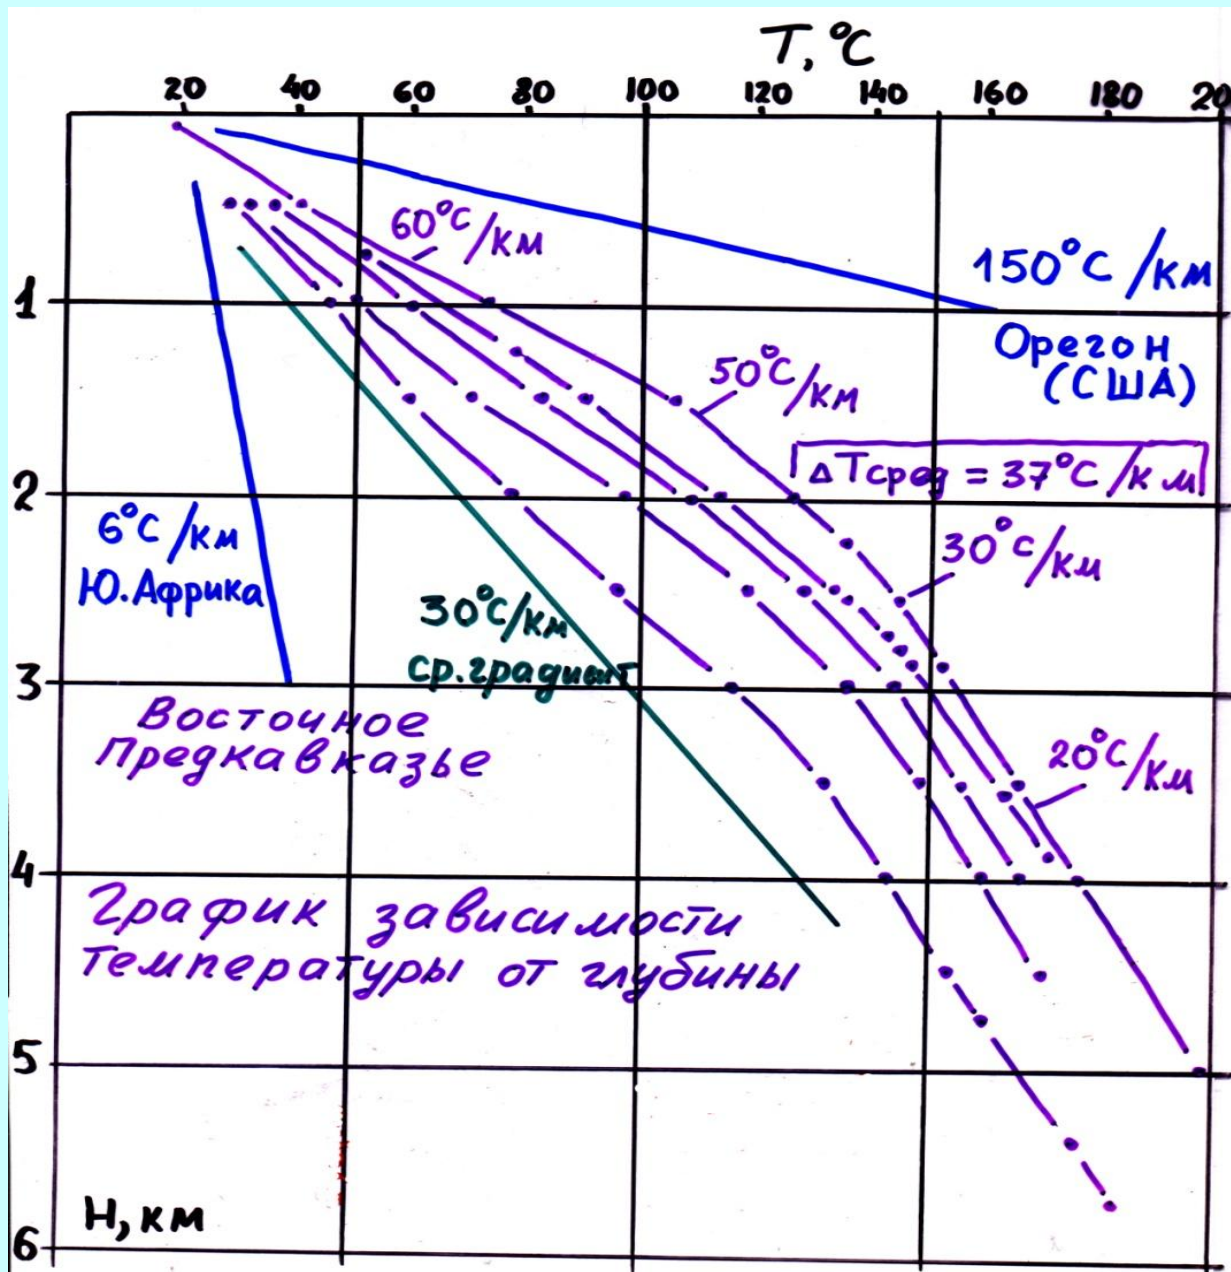 T, °C
20 40 60 80 100 120 140 160 180 20
60°C/км
150°C/км
1
Орегон
(США)
50°C/км
ΔTсред = 37°C/км
2
6°C/км
Ю.Африка
30°C/км
30°C/км
ср.градиент
3
Восточное
Предкавказье
20°C/км
4
График зависимости
температуры от глубины
5
H, км
6